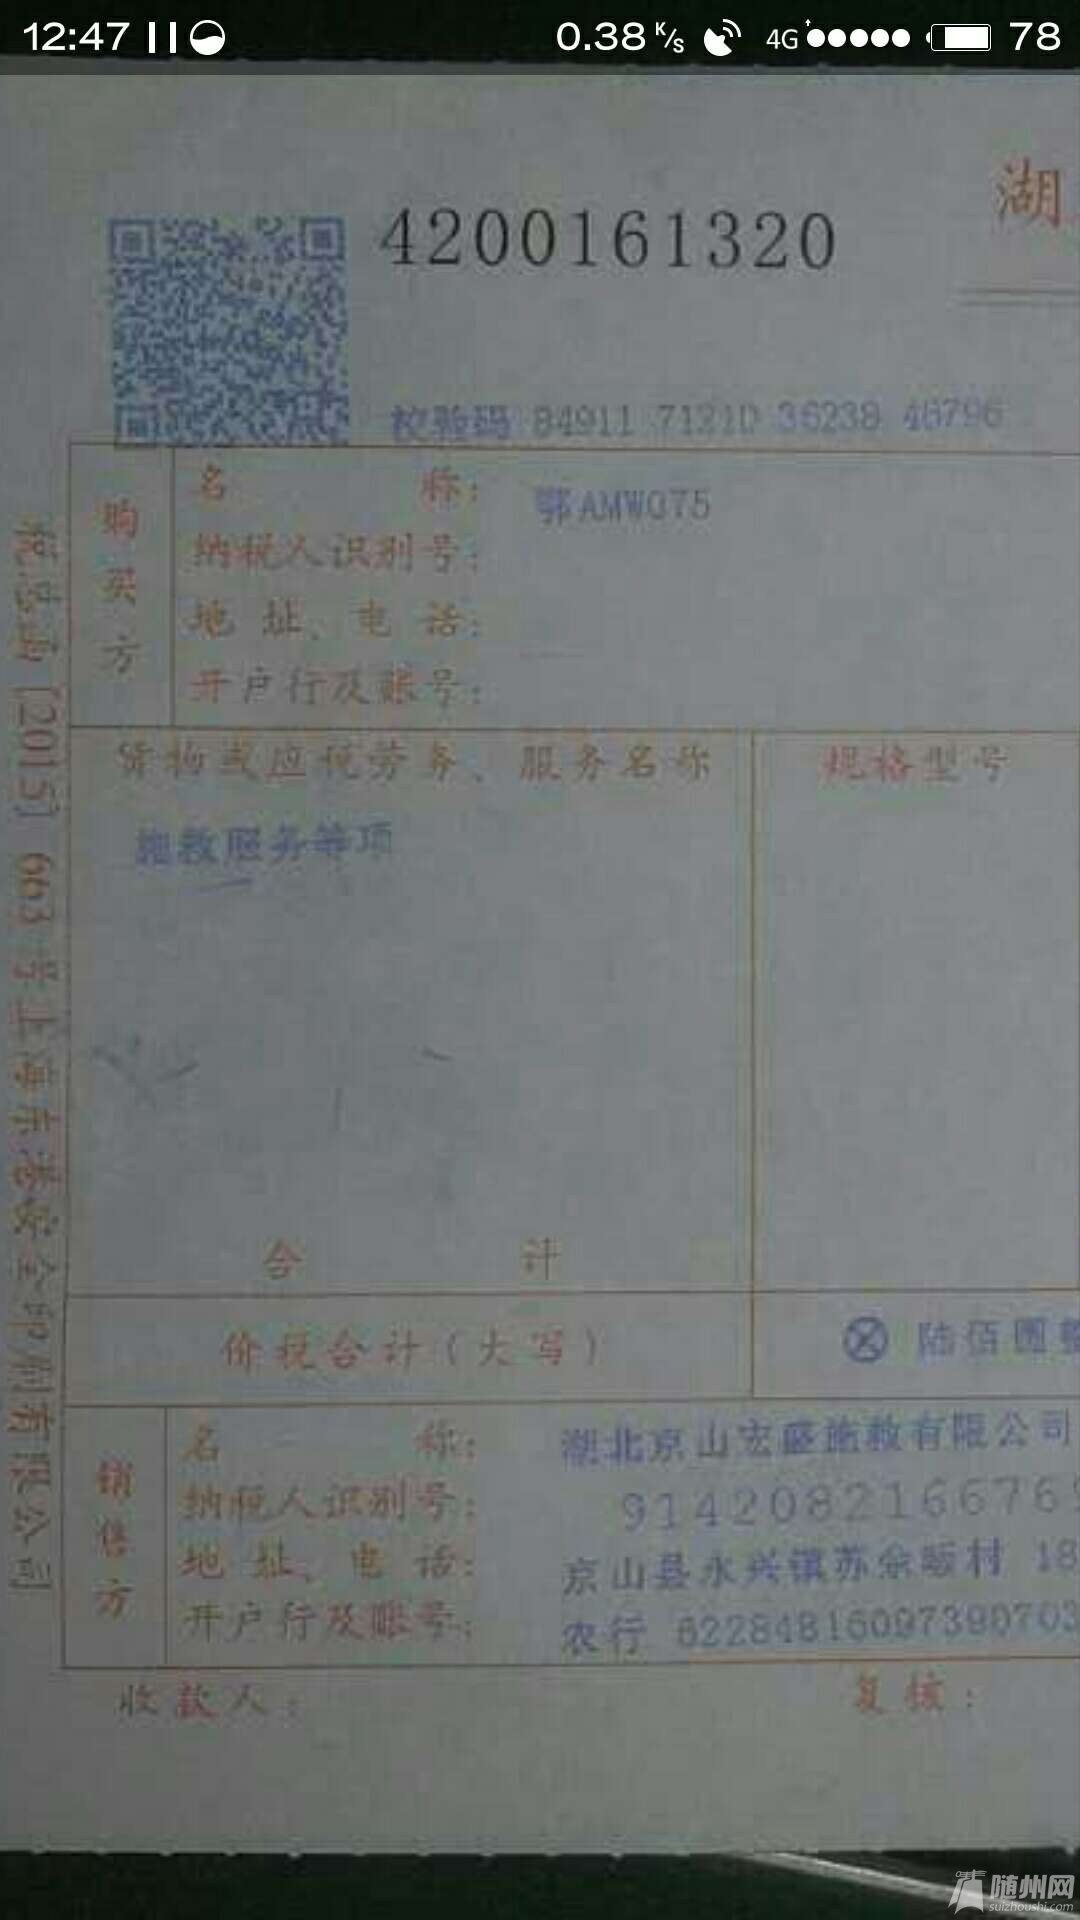 12:47
0.38 K/s 4G 78
湖
4200161320
校验码 84911 7121D 36238 46796
购买方
名 称: 鄂AMWQ75
纳税人识别号:
地 址、电 话:
开户行及账号:
货物或应税劳务、服务名称 规格型号
施救服务等项
合 计
价税合计(大写) ⊗ 陆佰圆整
销售方
名 称: 湖北京山宏盛施救有限公司
纳税人识别号: 914208216676
地 址、电 话: 京山县永兴镇苏佘畈村 18
开户行及账号: 农行
收款人: 复核:
税总函[2015] 663 号上海东港安全印刷有限公司
随州网
suizhoushi.com